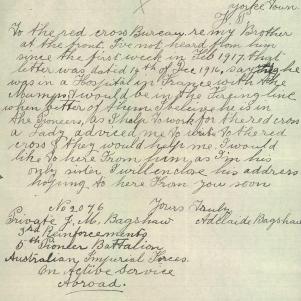 Yorke Town
To the red cross Bureau, re my Brother
at the front. I've not heard from him
since the first week in Feb 1917 that
letter was dated 14th of Dec 1916, saying he
was in a Hospital in France with the
Mumps & would be in the Fireing line
when better of them I believe he is in
the Pioneers, as I help to work for the red cross
a Lady adviced me to write to the red
cross & they would help me. I would
like to here from him, as I'm his
only sister I will enclose his address
hoping to here from you soon
Yours Truly
Adelaide Bagshaw
No 2076
Private J. M. Bagshaw
3rd Reinforcements
5th Pioneer Battalion
Australian Imperial Forces.
On Active Service
Abroad.